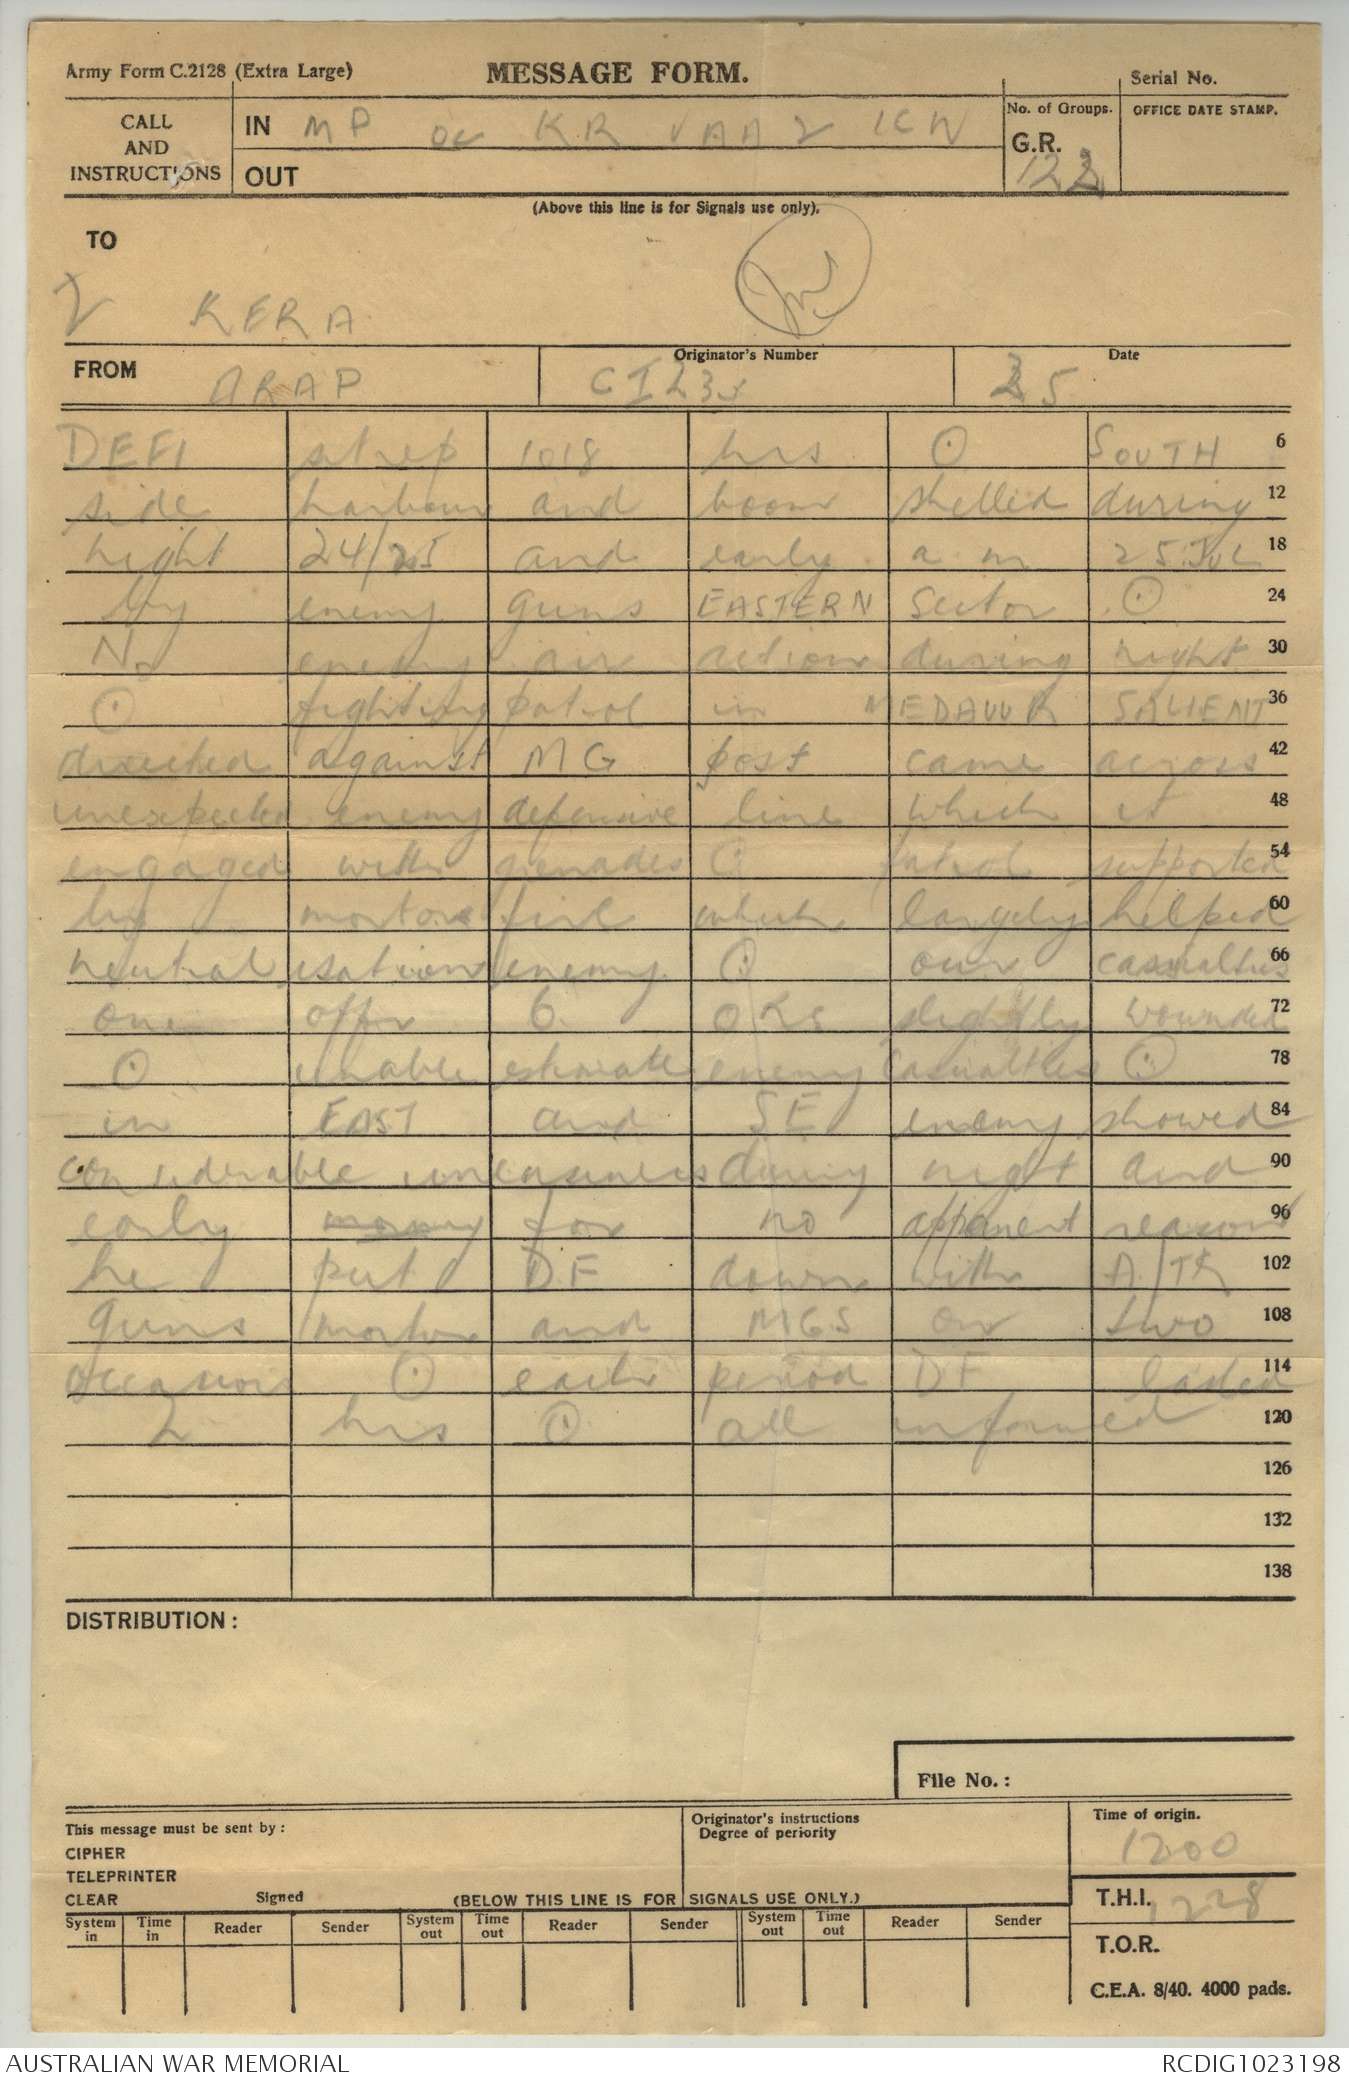 Army Form C.2128 (Extra Large)
MESSAGE FORM.
Serial No.
CALL
AND
INSTRUCTIONS
IN MP oc KR VAA 2 ICW
OUT
No. of Groups.
G.R.
122
OFFICE DATE STAMP.
(Above this line is for Signals use only).
TO
KERA
FROM ARAP
Originator's Number
Date
25
DEF1 sitrep 1018 hrs ⊙ SOUTH 6
side harbour and boom shelled during 12
night 24/25 and early a m 25 JUL 18
by enemy guns EASTERN sector ⊙ 24
No enemy air action during night 30
⊙ fighting patrol in MEDAUUR SALIENT 36
directed against MG post came across 42
unexpected enemy defensive line which it 48
engaged with grenades ⊙ patrol supported 54
by mortar fire which largely helped 60
neutral isation enemy ⊙ our casualties 66
one offr 6 ORs slightly wounded 72
⊙ unable estimate enemy casualties ⊙ 78
in EAST and SE enemy showed 84
considerable uneasiness during night and 90
early morning for no apparent reason 96
he put DF down with A/TK 102
guns mortar and MGS on two 108
occasions ⊙ each period DF lasted 114
2 hrs ⊙ all informed 120
126
132
138
DISTRIBUTION :
File No. :
This message must be sent by :
CIPHER
TELEPRINTER
CLEAR
Signed
Originator's instructions
Degree of periority
(BELOW THIS LINE IS FOR SIGNALS USE ONLY.)
Time of origin.
1200
T.H.I. 1228
T.O.R.
System in
Time in
Reader
Sender
System out
Time out
Reader
Sender
System out
Time out
Reader
Sender
C.E.A. 8/40. 4000 pads.
AUSTRALIAN WAR MEMORIAL
RCDIG1023198